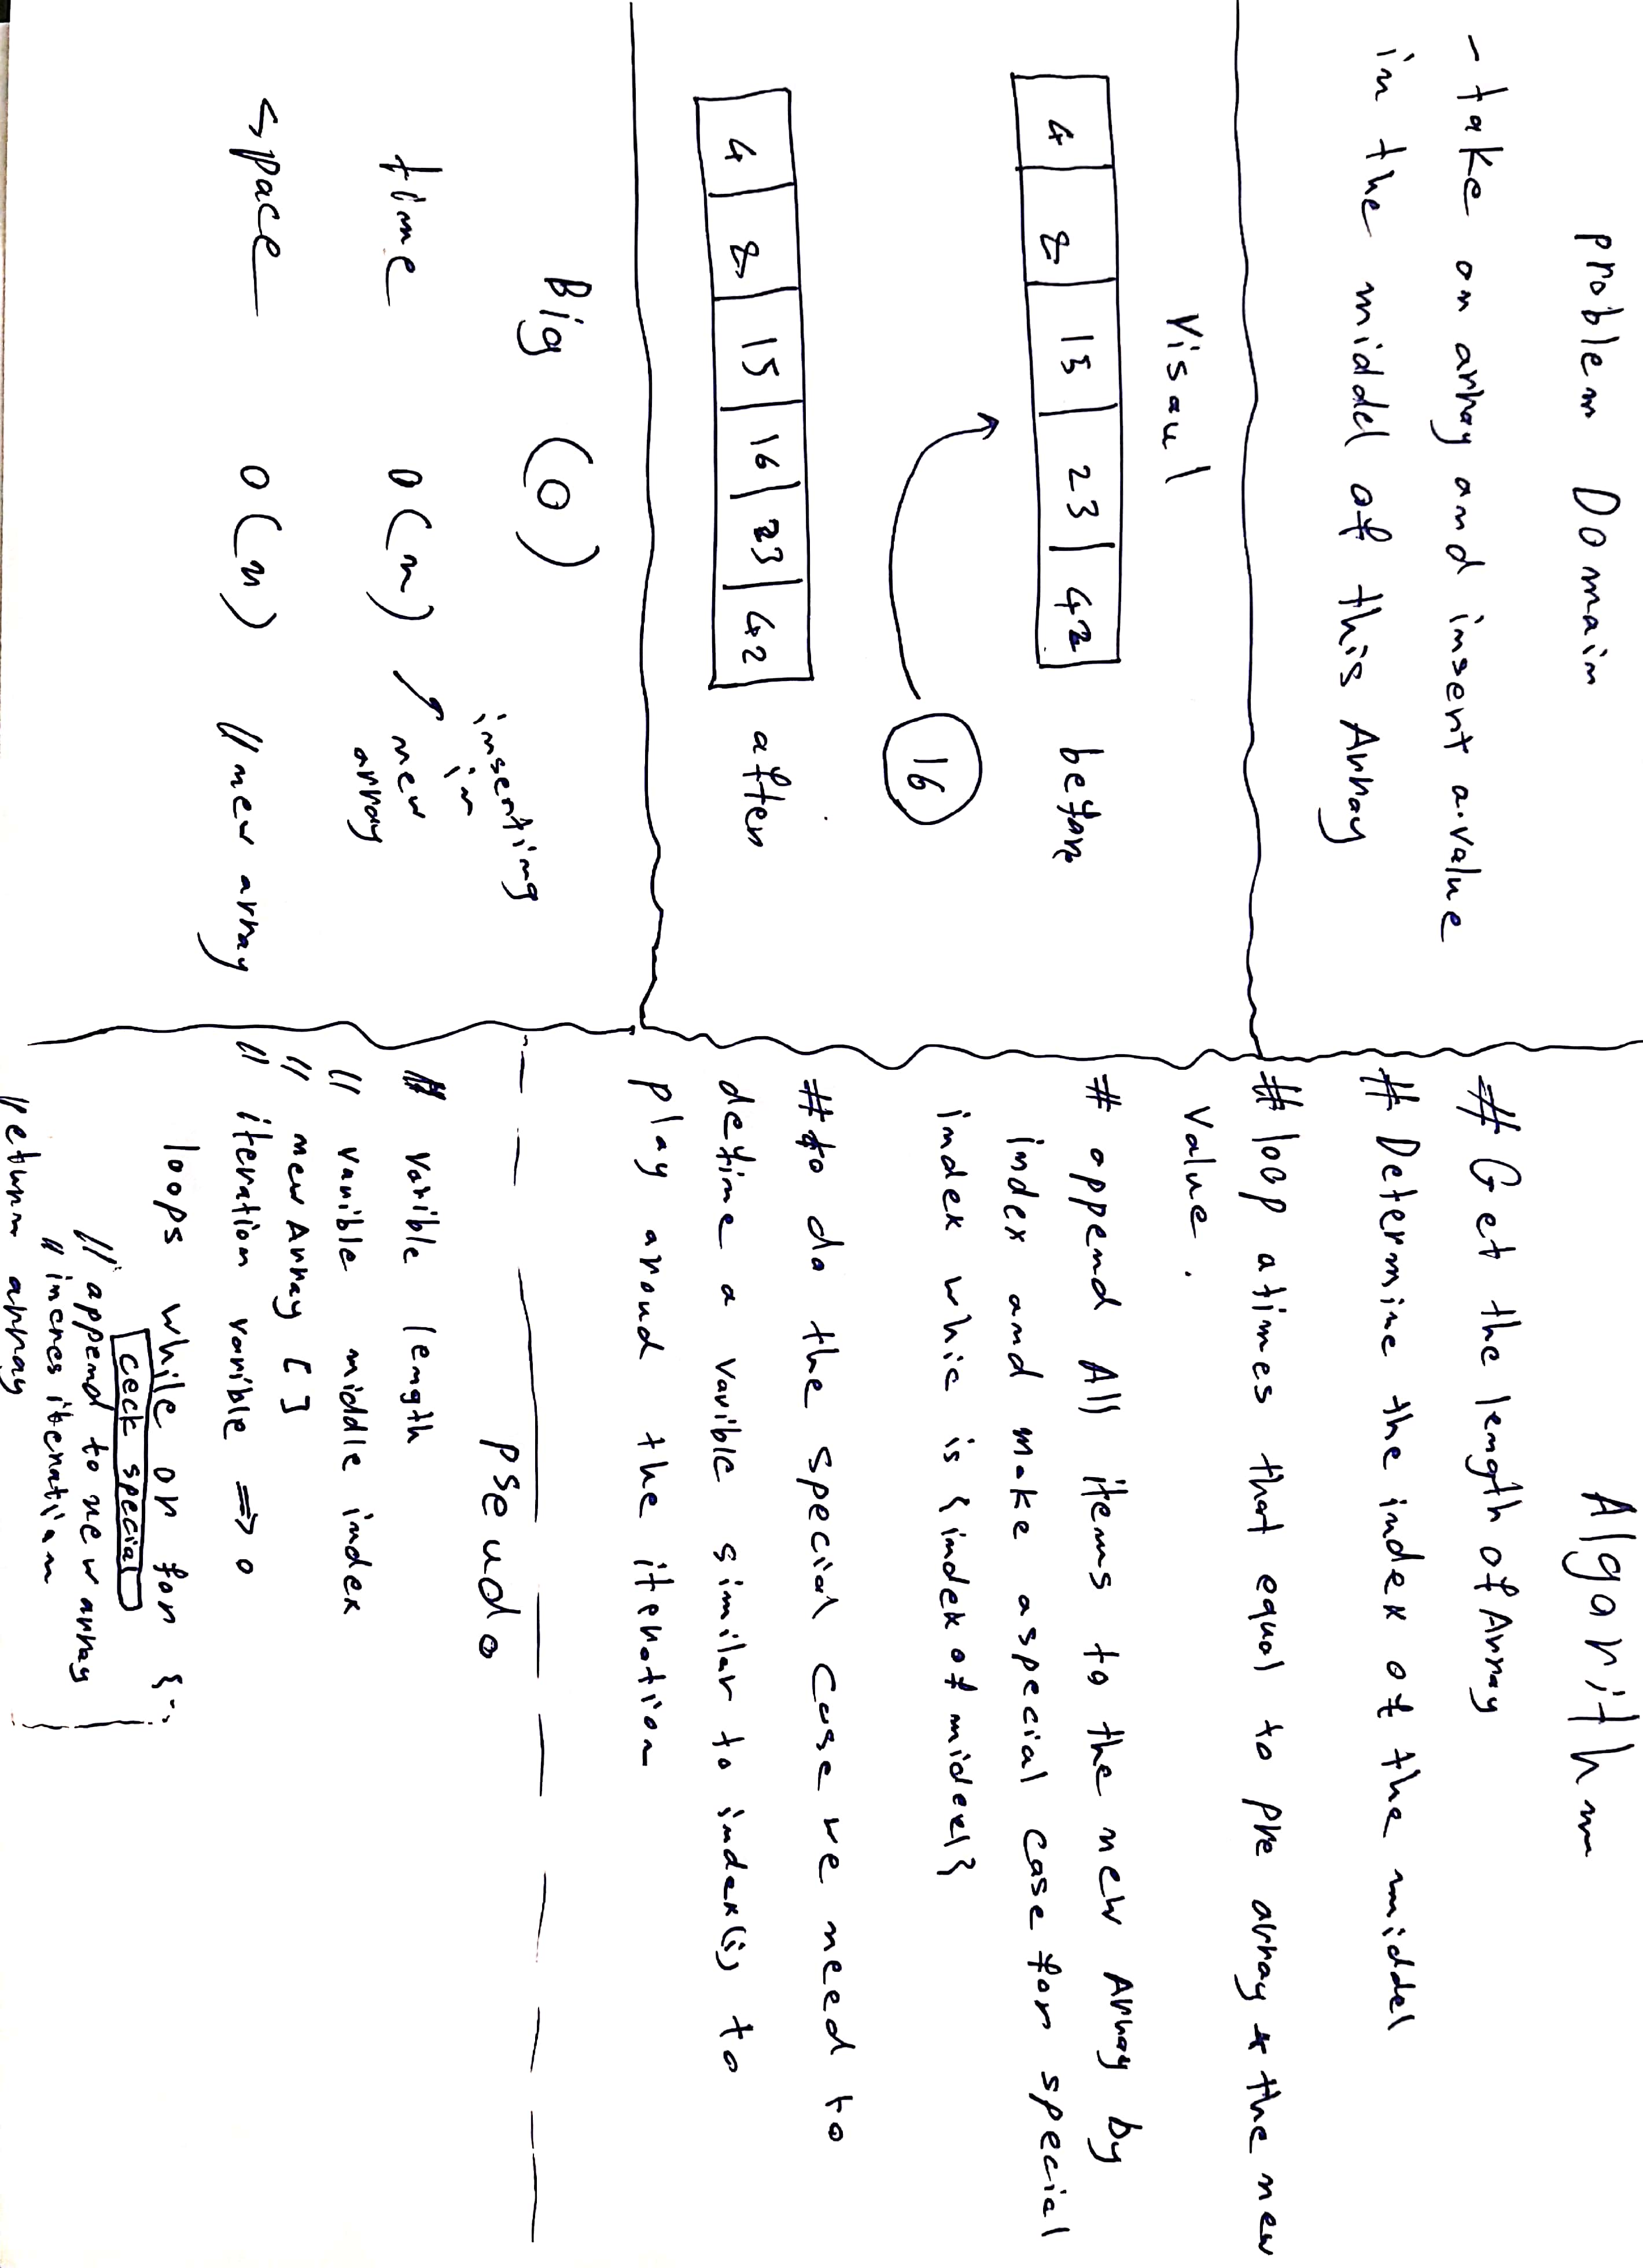 problem Domain
- take on array and insert a value
in the middel of this Array
Visaul
4 8 15 23 42 before
16
4 8 15 16 23 42 after
Big (O)
inserting
in
time O(n) new
array
space O(n) // new array
Algorithm
# Get the length of Array
# Determine the index of the middel
# loop atimes that equal to pre array + the new
value.
# append All items to the new Array by
index and make aspecial case for special
index whic is {index of middel}
# to do the special case we need to
define a varible similar to index(i) to
play around the iteration
pseudo
// varible length
// varible middle index
// new Array []
// iteration varible => 0
loops while or for {
ceck special
// append to new array
// incres iteration
return array